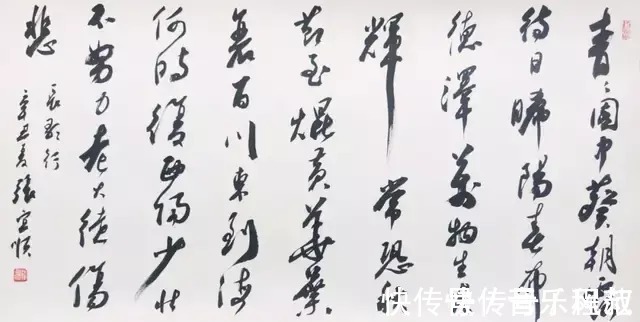 青〻園中葵朝露
待日晞陽春布
德澤萬物生光
輝常恐秋
節至焜黃華葉
衰百川東到海
何時復西歸少壯
不努力老大徒傷
悲
長歌行
辛丑夏張